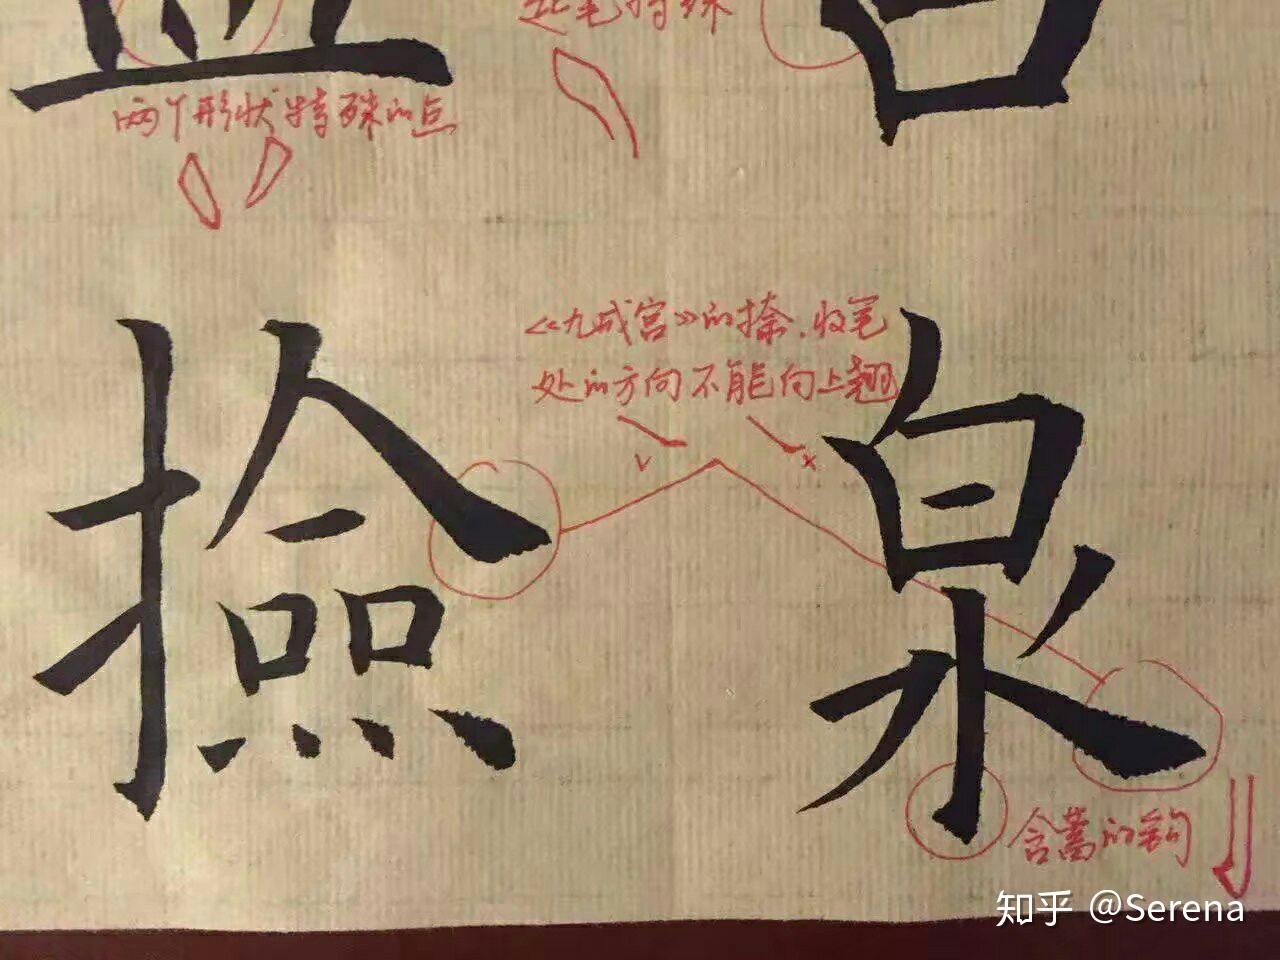 起笔特殊
两个形状特殊的点
《九成宫》的捺,收笔
处的方向不能向上翘
√ ×
撿泉
含蓄的钩
知乎 @Serena